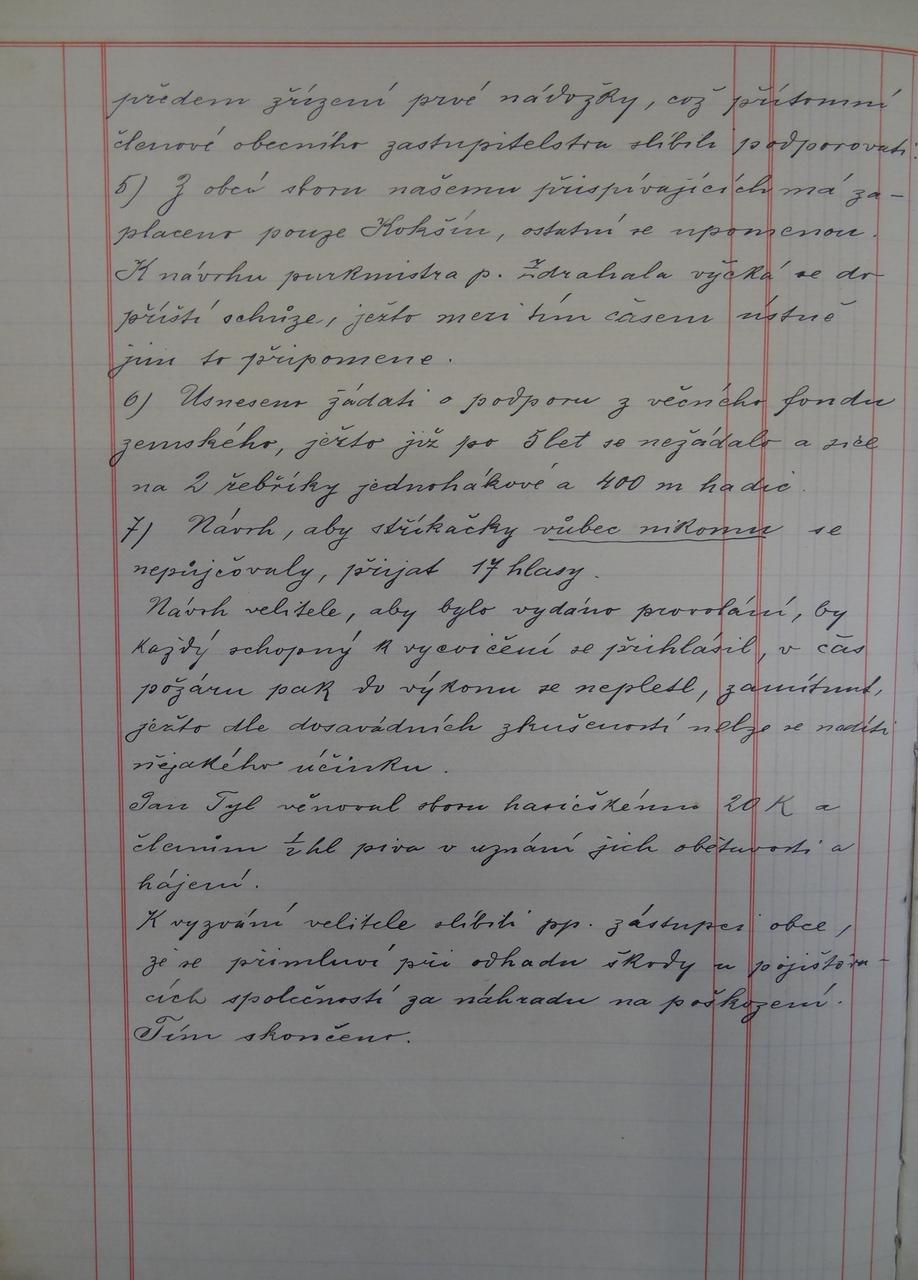 předem zřízení prvé nádržky, což přítomní
členové obecního zastupitelstva slíbili podporovati.
5) Z obcí sboru našemu přispívajících má za-
placeno pouze Kokšín, ostatní se upomenou.
K návrhu purkmistra p. Zdrahala vyčká se do
příští schůze, ježto mezi tím časem ústně
jim to připomene.
6) Usneseno žádati o podporu z věcného fondu
zemského, ježto již po 5 let se nežádalo a sice
na 2 řebříky jednohákové a 400 m hadic.
7) Návrh, aby stříkačky vůbec nikomu se
nepůjčovaly, přijat 17 hlasy.
Návrh velitele, aby bylo vydáno provolání, by
každý schopný k vycvičení se přihlásil, v čas
požáru pak do výkonu se nepletl, zamítnut,
ježto dle dosavádních zkušeností nelze se nadíti
nějakého účinku.
Jan Tyl věnoval sboru hasičskému 20 K a
členům ½ hl piva v uznání jich obětavosti a
hájení.
K vyzvání velitele slíbili pp. zástupci obce,
že se přimluví při odhadu škody u pojišťova-
cích společností za náhradu na poškození.
Tím skončeno.